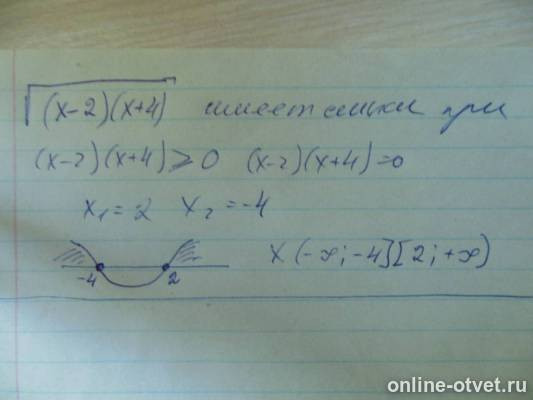 √(x-2)(x+4) имеет смысл при
(x-2)(x+4)⩾0 (x-2)(x+4)=0
x₁=2 x₂=-4
-4 2 x(-∞;-4][2;+∞)
online-otvet.ru